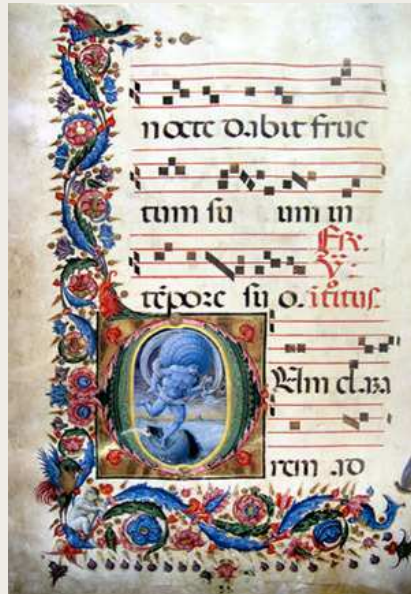 nocte dabit fruc
tum su um in
tēpore su o.
Um clama
rem ad